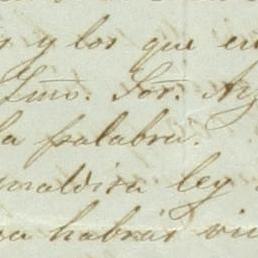 y los que en
Ilmo. Sor. Az
la palabra.
maldita ley
habrás vi